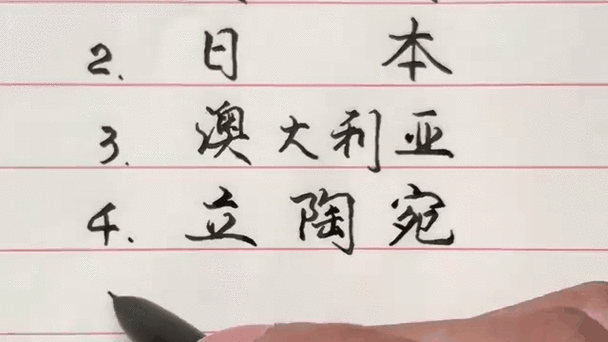 2. 日本
3. 澳大利亚
4. 立陶宛